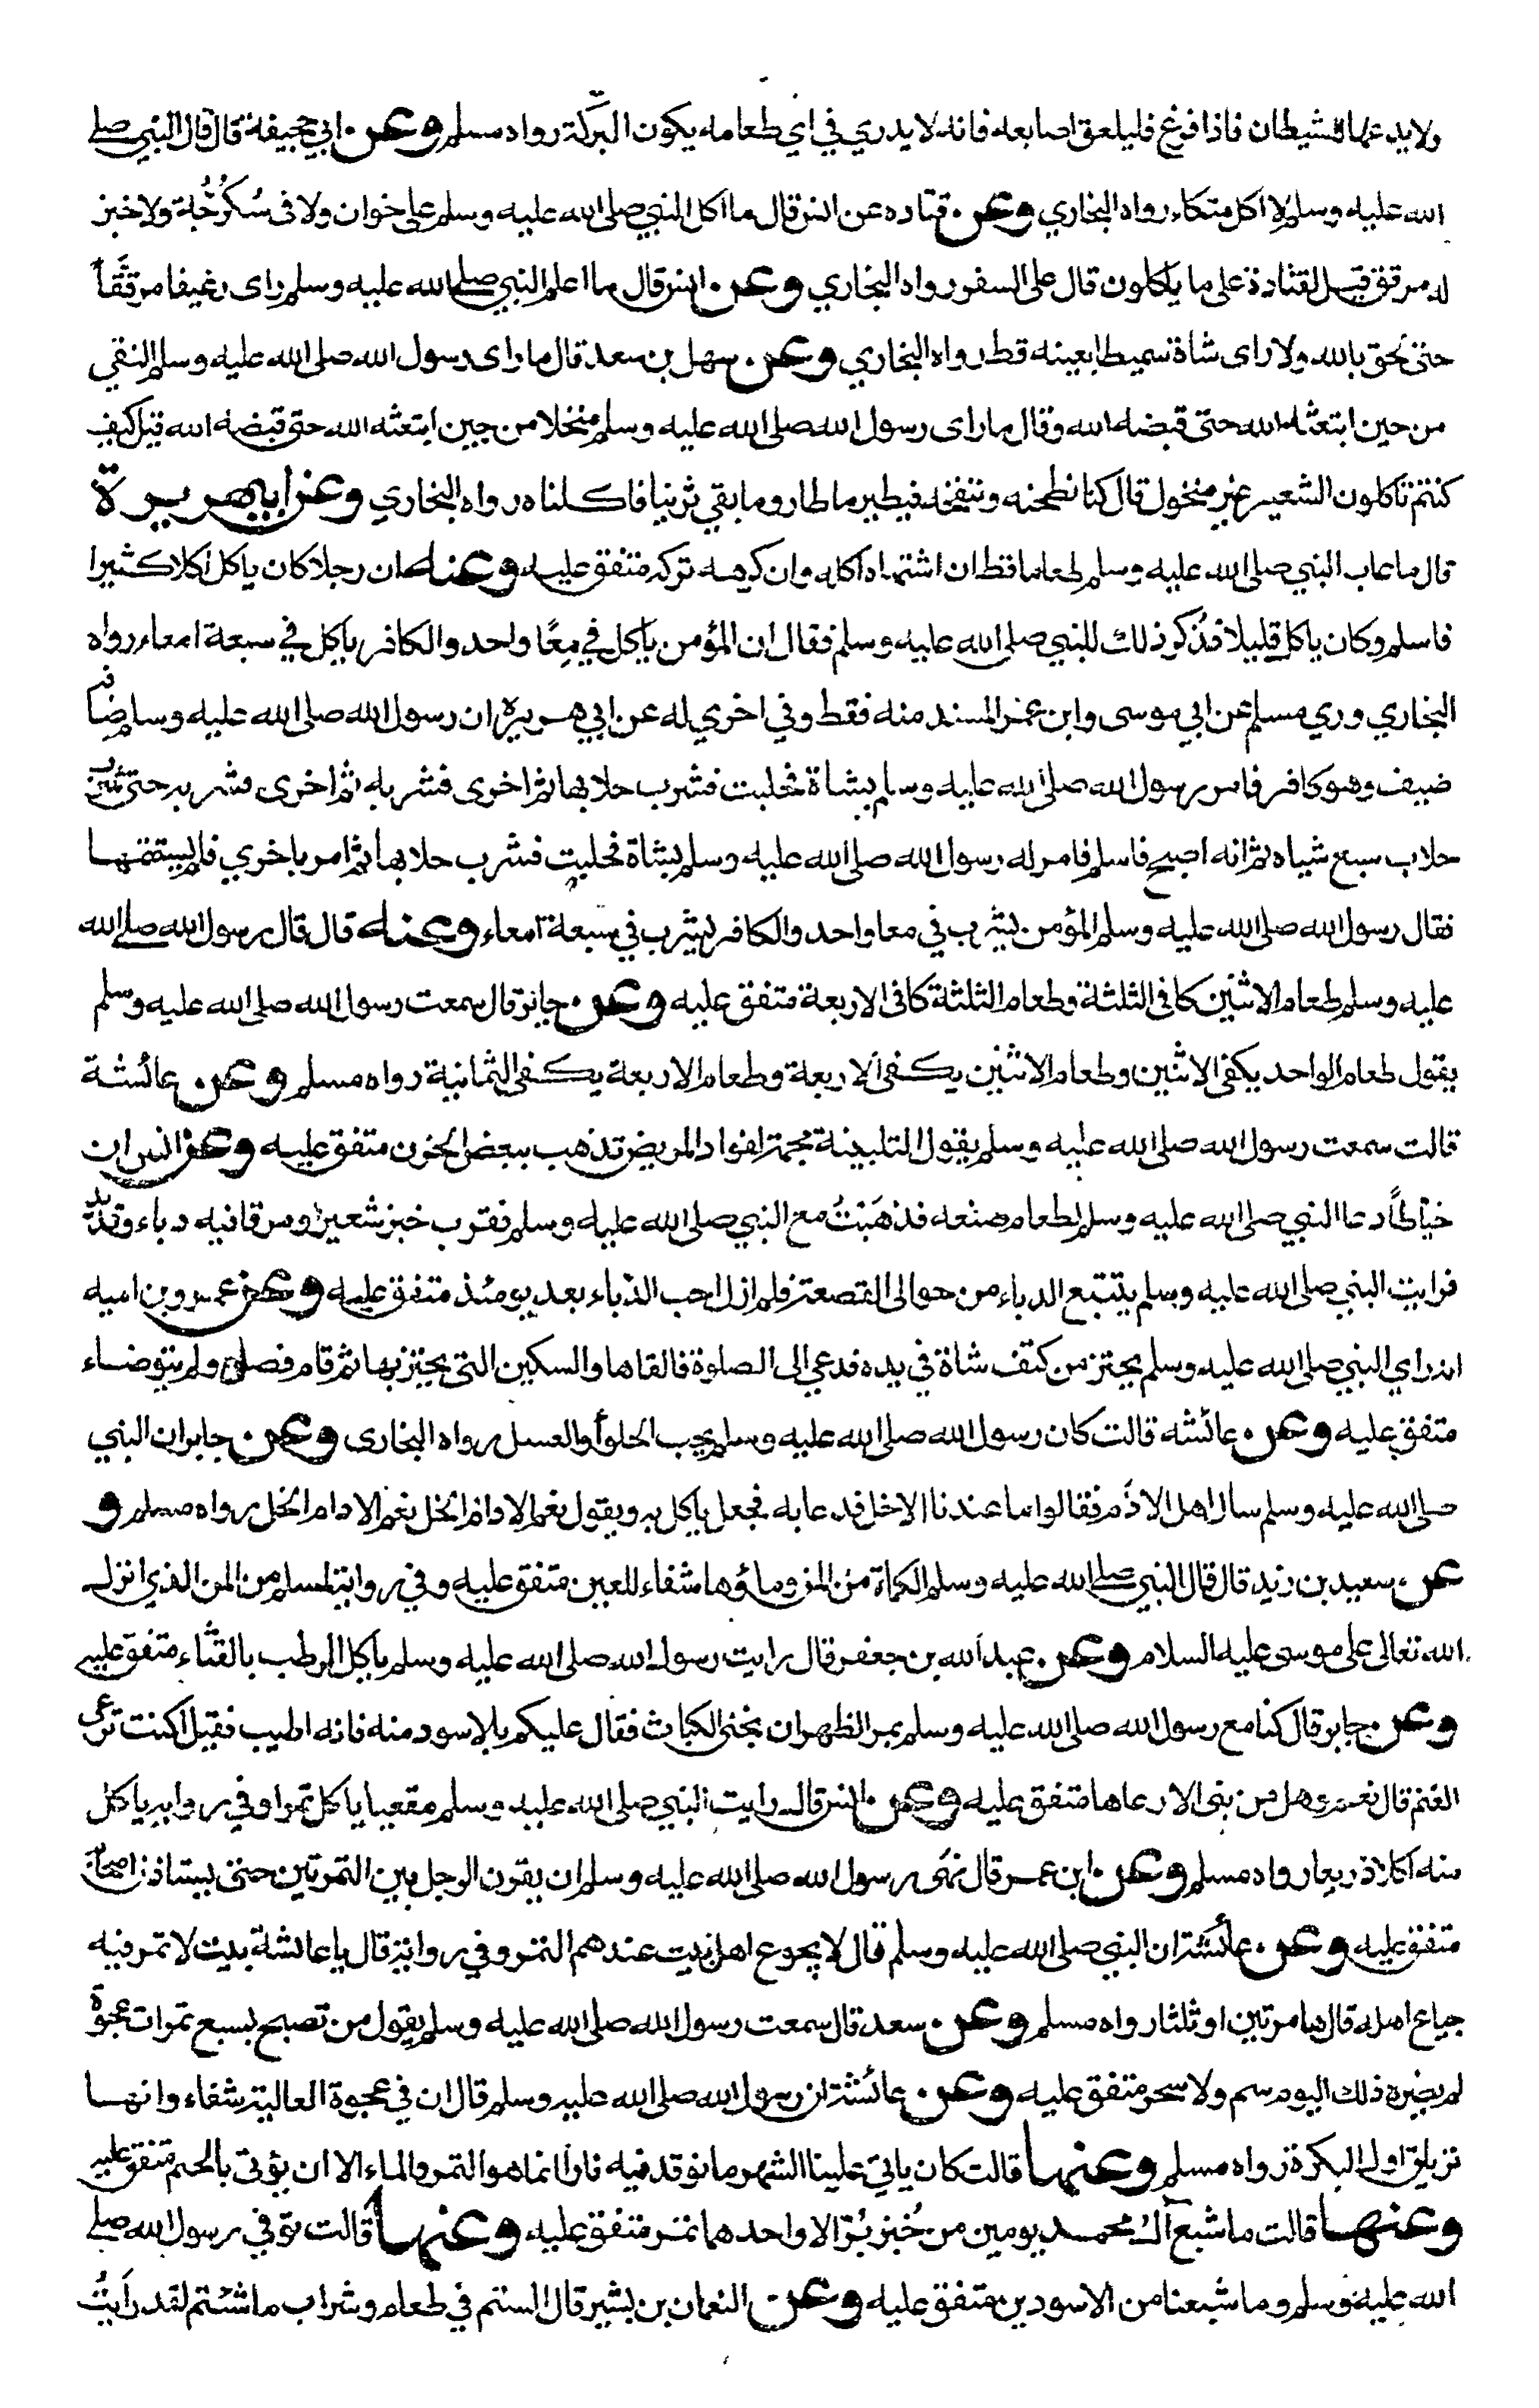 ولا يدعها للشيطان فاذا فرغ فليلعق اصابعه فانه لا يدري في اي طعامه يكون البركة رواه مسلم وعن ابي جحيفة قال قال النبي صلى
الله عليه وسلم لا اكل متكاء رواه البخاري وعن قتاده عن انس قال ما اكل النبي صلى الله عليه وسلم على خوان ولا فى سُكُرُّجَة ولا خبز
له مرقق قيل لقتادة على ما ياكلون قال على السفر رواه البخاري وعن انس قال ما اعلم النبي صلى الله عليه وسلم راى رغيفا مرقَّقاً
حتى لحق بالله ولا راى شاة سميطا بعينه قط رواه البخاري وعن سهل بن سعد قال ما راى رسول الله صلى الله عليه وسلم النقي
من حين ابتعثه الله حتى قبضه الله وقال ما راى رسول الله صلى الله عليه وسلم منخلا من حين ابتعثه الله حتى قبضه الله قيل كيف
كنتم تاكلون الشعير غير منخول قال كنا نطحنه وننفخه فيطير ما طار وما بقي ثرينا فاكلناه رواه البخاري وعن ابي هريرة
قال ما عاب النبي صلى الله عليه وسلم طعاما قط ان اشتهاه اكله وان كرهه تركه متفق عليه وعنه ان رجلا كان ياكل اكلا كثيرا
فاسلم وكان ياكل قليلا فذُكر ذلك للنبي صلى الله عليه وسلم فقال ان المؤمن ياكل في مِعًا واحد والكافر ياكل في سبعة امعاء رواه
البخاري وروي مسلم عن ابي موسى وابن عمر المسند منه فقط وفي اخري له عن ابي هريرة ان رسول الله صلى الله عليه وسلم ضافه
ضيف وهو كافر فامر رسول الله صلى الله عليه وسلم بشاة فحلبت فشرب حلابها ثم اخرى فشربه ثم اخرى فشربه حتى شرب
حلاب سبع شياه ثم انه اصبح فاسلم فامر له رسول الله صلى الله عليه وسلم بشاة فحلبت فشرب حلابها ثم امر باخري فلم يستتمها
فقال رسول الله صلى الله عليه وسلم المؤمن يشرب في معا واحد والكافر يشرب في سبعة امعاء وعنه قال قال رسول الله صلى الله
عليه وسلم طعام الاثنين كافى الثلثة وطعام الثلثة كافى الاربعة متفق عليه وعن جابر قال سمعت رسول الله صلى الله عليه وسلم
يقول طعام الواحد يكفى الاثنين وطعام الاثنين يكفى الاربعة وطعام الاربعة يكفى الثمانية رواه مسلم وعن عائشة
قالت سمعت رسول الله صلى الله عليه وسلم يقول التلبينة مجمة لفواد المريض تذهب ببعض الحزن متفق عليه وعن انس ان
خيّاطاً دعا النبي صلى الله عليه وسلم لطعام صنعه فذهَبَتُ مع النبي صلى الله عليه وسلم فقرب خبز شعير ومرقا فيه دباء وقديد
فرايت النبي صلى الله عليه وسلم يتتبع الدباء من حوالى القصعة فلم ازل احب الدباء بعد يومئذ متفق عليه وعن عمرو بن اميه
انه راي النبي صلى الله عليه وسلم يحتز من كتف شاة في يده فدعي الى الصلوة فالقاها والسكين التى يحتز بها ثم قام فصلى ولم يتوضاء
متفق عليه وعن عائشه قالت كان رسول الله صلى الله عليه وسلم يحب الحلوآ والعسل رواه البخارى وعن جابر ان النبي
صلى الله عليه وسلم سال اهله الادُم فقالوا ما عندنا الا خل فدعا به فجعل ياكل به ويقول نعم الادام الخل نعم الادام الخل رواه مسلم و
عن سعيد بن زيد قال قال النبي صلى الله عليه وسلم الكماة من المن وماؤها شفاء للعين متفق عليه وفي رواية لمسلم من المن الذي انزل
الله تعالى على موسى عليه السلام وعن عبد الله بن جعفر قال رايت رسول الله صلى الله عليه وسلم ياكل الرطب بالقثاء متفق عليه
وعن جابر قال كنا مع رسول الله صلى الله عليه وسلم بمر الظهران نجنى الكباث فقال عليكم بالاسود منه فانه اطيب فقيل اكنت ترعى
الغنم قال نعم وهل من نبى الا رعاها متفق عليه وعن انس قال رايت النبي صلى الله عليه وسلم مقعيا ياكل تمرا وفي رواية ياكل
منه اكلا ذريعا رواه مسلم وعن ابن عمر قال نهى رسول الله صلى الله عليه وسلم ان يقرن الرجل بين التمرتين حتى يستاذن اصحابه
متفق عليه وعن عائشة ان النبي صلى الله عليه وسلم قال لا يجوع اهل بيت عندهم التمر وفي رواية قال يا عائشة بيت لا تمر فيه
جياع اهله قالها مرتين او ثلثا رواه مسلم وعن سعد قال سمعت رسول الله صلى الله عليه وسلم يقول من تصبح بسبع تمرات عجوة
لم يضره ذلك اليوم سم ولا سحر متفق عليه وعن عائشة ان رسول الله صلى الله عليه وسلم قال ان في عجوة العالية شفاء وانها
ترياق اول البكرة رواه مسلم وعنها قالت كان ياتي علينا الشهر ما نوقد فيه نارا انما هو التمر والماء الا ان يؤتى بالحم متفق عليه
وعنها قالت ما شبع آل محمد يومين من خُبز بُرّ الا واحدهما تمر متفق عليه وعنها قالت توفي رسول الله صلى
الله عليه وسلم وما شبعنا من الاسودين متفق عليه وعن النعمان بن بشير قال الستم في طعام وشراب ما شئتم لقد رايتُ